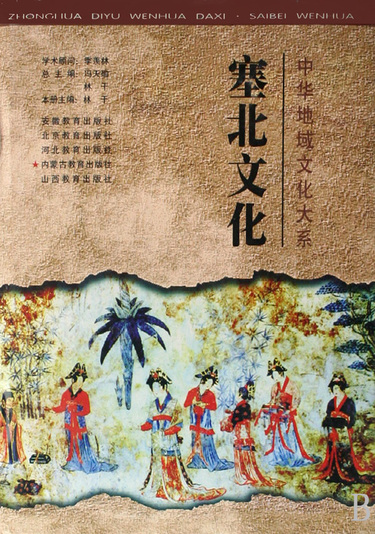 ZHONGHUA DIYU WENHUA DAXI · SAIBEI WENHUA
学术顾问：季羡林
总主编：冯天瑜
林干
本册主编：林干
安徽教育出版社
北京教育出版社
河北教育出版社
★内蒙古教育出版社
山西教育出版社
塞北文化
中华地域文化大系
B